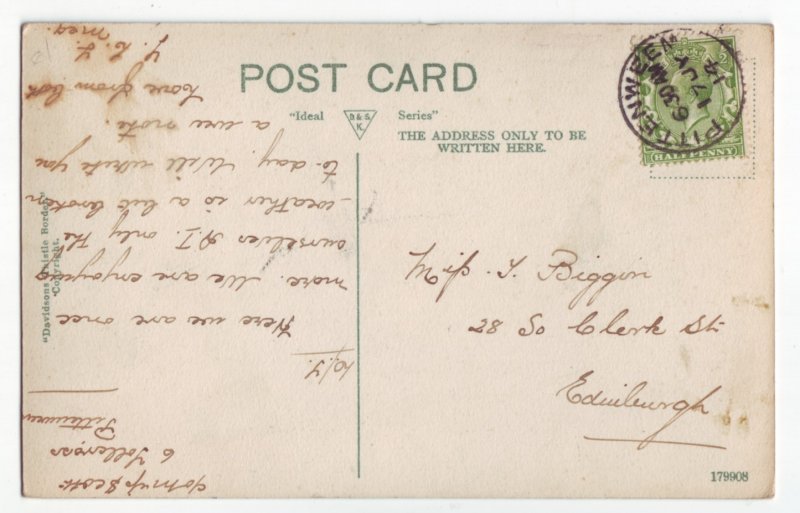 POST CARD
"Ideal
D & S.
K.
Series"
THE ADDRESS ONLY TO BE
WRITTEN HERE.
PITTENWEEM
6 30 AM
17 JL
12
HALFPENNY
Miſs. I. Biggin
28 So Clerk St.
Edinburgh
179908
"Davidsons Thistle Border"
Copyright.
c/o Miſs Scott
6 Tolleross
Pittenweem
Here we are once
more. We are enjoying
ourselves A.I. only the
weather is a bit broken
to-day. Will write you
a wee note.
Love from
Meg